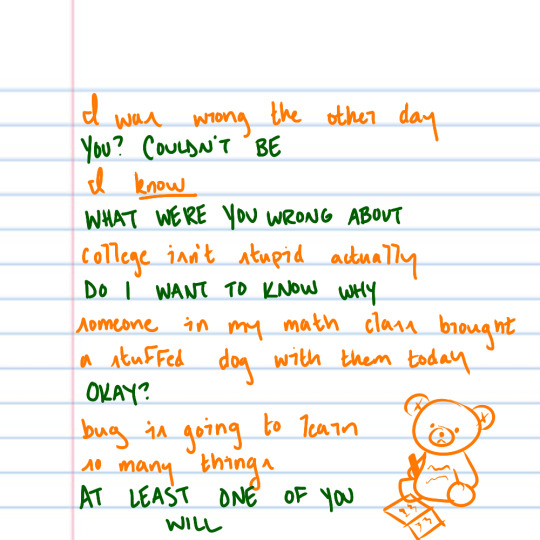 I was wrong the other day
YOU? COULDN'T BE
I know
WHAT WERE YOU WRONG ABOUT
college isn't stupid actually
DO I WANT TO KNOW WHY
someone in my math class brought
a stuffed dog with them today
OKAY?
bug is going to learn
so many things
AT LEAST ONE OF YOU
WILL